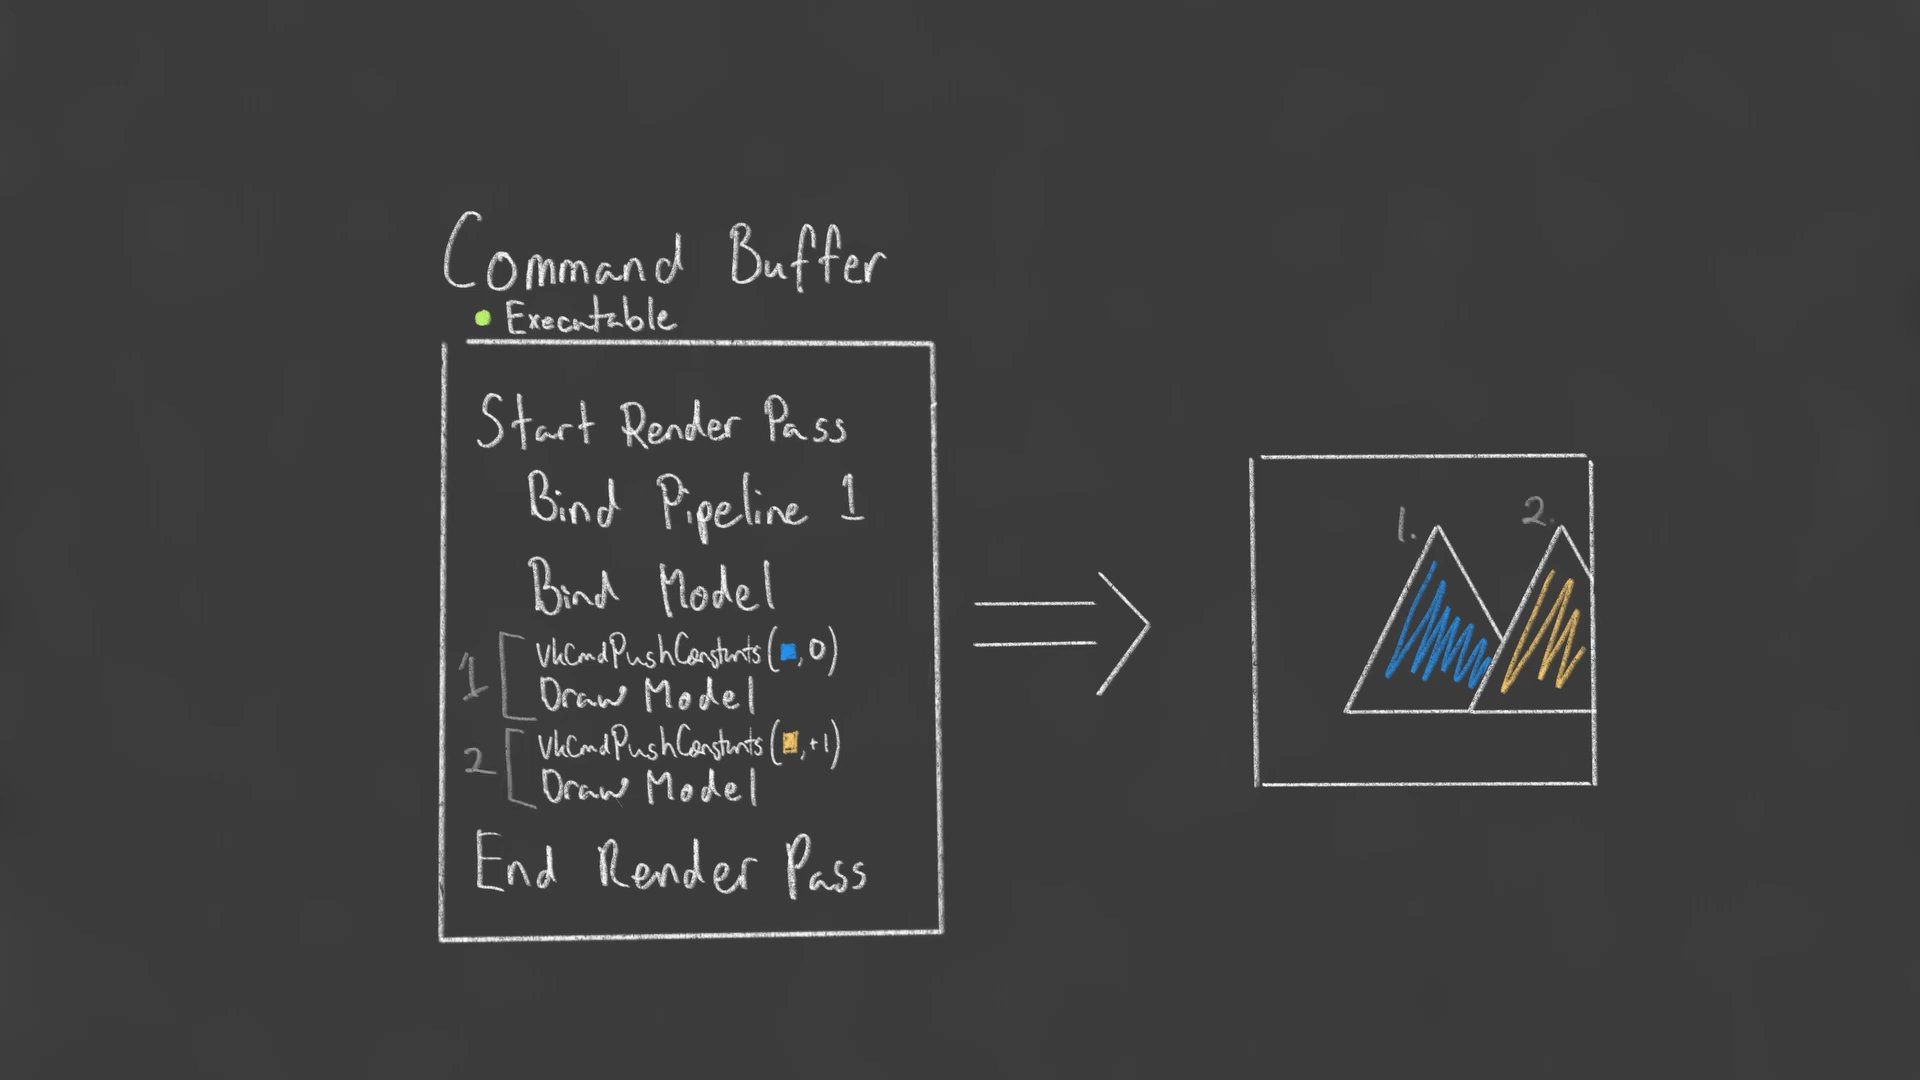 Command Buffer
Executable
Start Render Pass
Bind Pipeline 1
Bind Model
1
vkCmdPushConstants( , 0)
Draw Model
2
vkCmdPushConstants( , +1)
Draw Model
End Render Pass
1.
2.